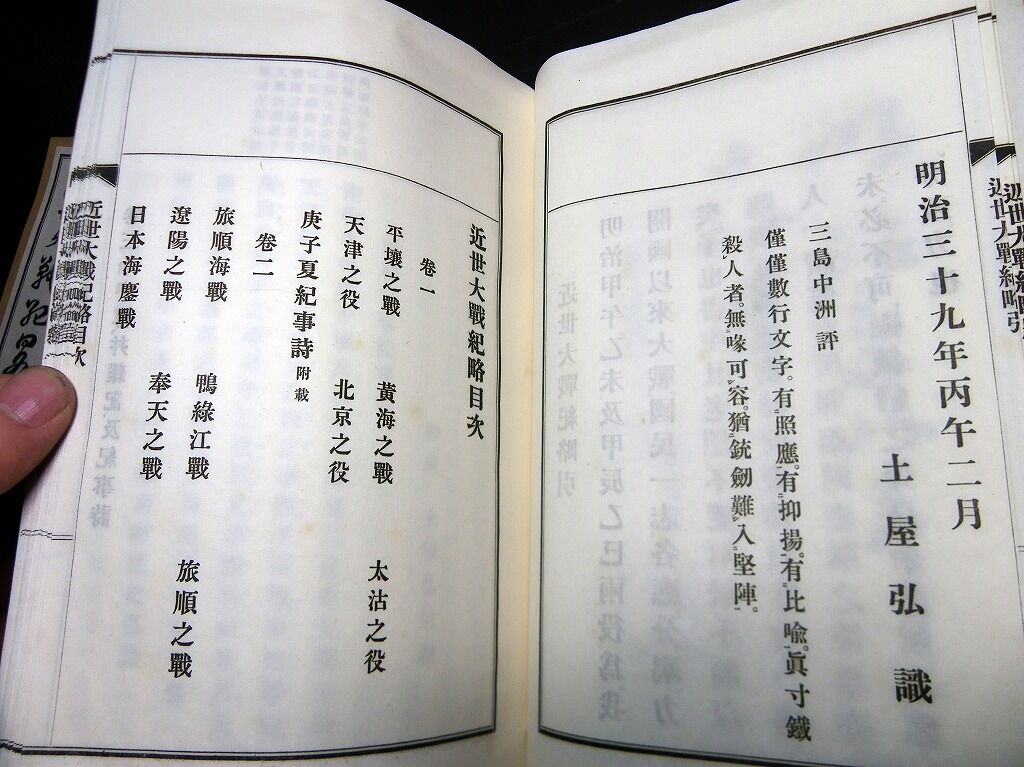 明治三十九年丙午二月
土屋弘識
三島中洲評
僅僅數行文字。有照應。有抑揚。有比喩。眞寸鐵
殺人者。無喙可容。猶銃劒難入堅陣。
近世大戰紀略引
近世大戰紀略目次
卷一
平壤之戰　黃海之戰　太沽之役
天津之役　北京之役
庚子夏紀事詩附載
卷二
旅順海戰　鴨綠江戰　旅順之戰
遼陽之戰　奉天之戰
日本海鏖戰
近世大戰紀略目次